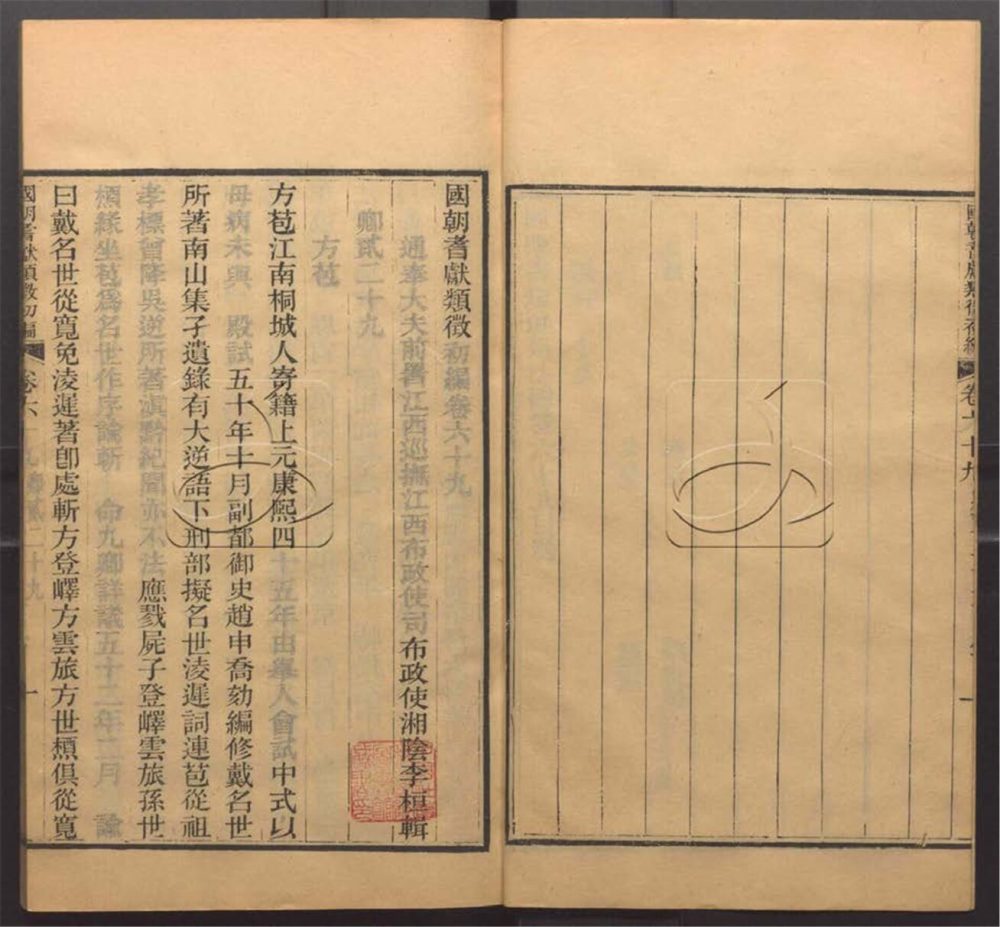 國朝耆獻類徵初編卷六十九
通奉大夫前署江西巡撫江西布政使司布政使湘陰李桓輯
卿貳二十九
方苞
方苞江南桐城人寄籍上元康熙四十五年由舉人會試中式以
母病未與 殿試五十年十月副都御史趙申喬劾編修戴名世
所著南山集孑遺錄有大逆語下刑部擬名世淩遲詞連苞從祖
孝標曾降吳逆所著滇黔紀聞亦不法應戮屍子登嶧雲旅孫世
樌緣坐苞為名世作序論斬 命九卿詳議五十二年二月 諭
曰戴名世從寬免淩遲著卽處斬方登嶧方雲旅方世樌俱從寬
國朝耆獻類徵初編 卷六十九 卿貳二十九 一